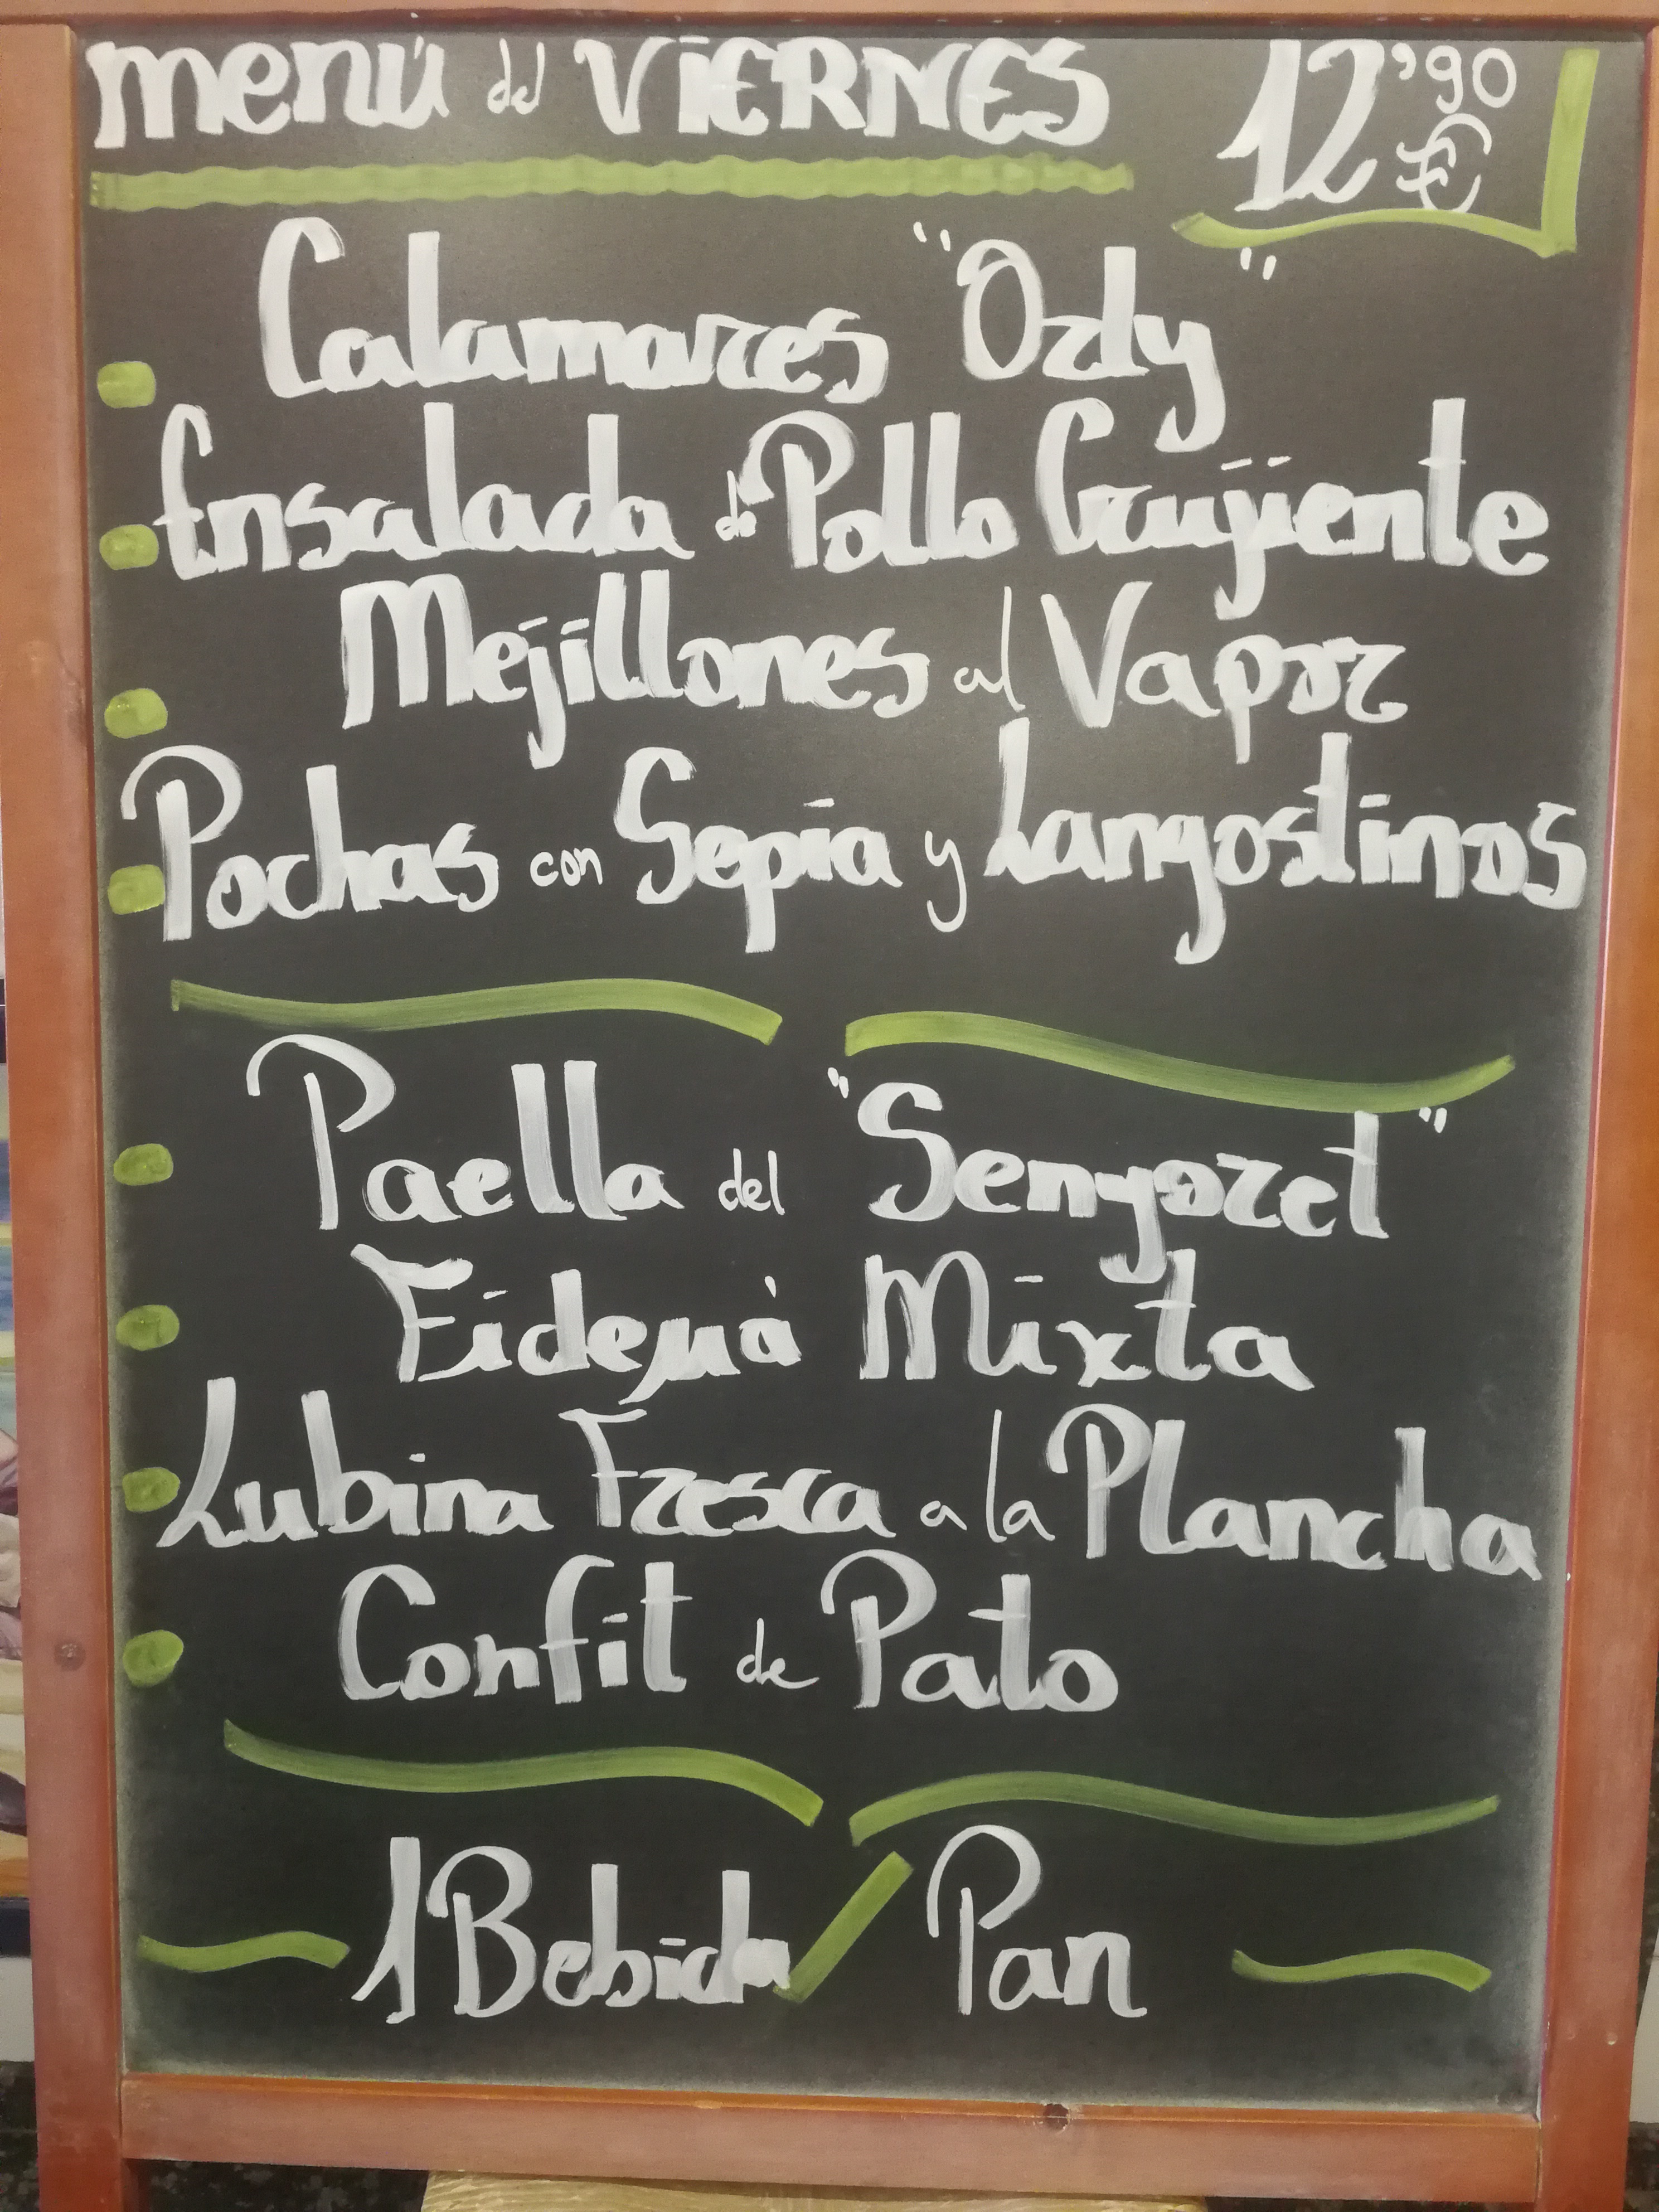 menú del ViERNES 12'90 €
Calamares "Orly"
Ensalada de Pollo Crujiente
Mejillones al Vapor
Pochas con Sepia y Langostinos
Paella del "Senyoret"
Fideuà Mixta
Lubina Fresca a la Plancha
Confit de Pato
1 Bebida / Pan